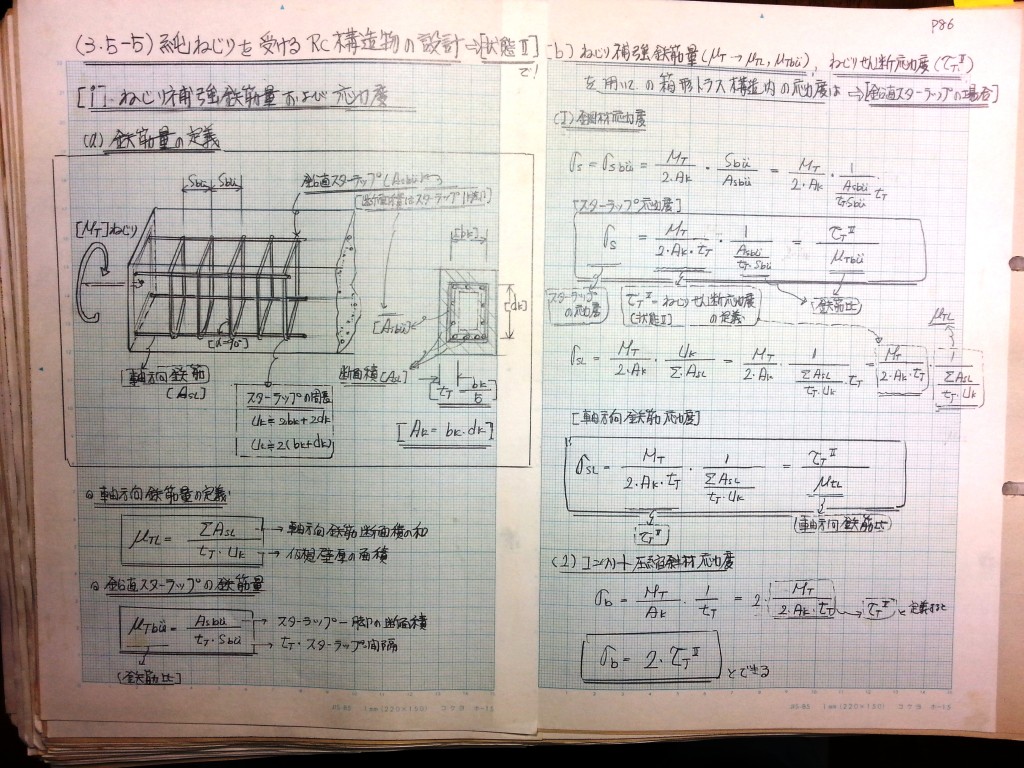 P86
(3.5-5) 純ねじりを受けるRC構造物の設計⇒[状態Ⅱ]で!
[i]. ねじり補強鉄筋量および応力度
(a) 鉄筋量の定義
Sbü Sbü
鉛直スターラップ(Asbü)
[MT]ねじり
[bk]
[dk]
[Asbü]
[α=90°]
軸方向鉄筋
[ASL]
断面積(ASL)
tT = bk/5
スターラップの周長
Uk≒2bk+2dk
Uk≒2(bk+dk)
[Ak=bk・dk]
軸方向鉄筋量の定義
μTL = ΣASL / tT・Uk
→軸方向鉄筋断面積の和
→仮想壁厚の面積
鉛直スターラップの鉄筋量
μTbü = Asbü / tT・Sbü
→スターラップ一脚の断面積
→tT・スターラップ間隔
(鉄筋比)
(b) ねじり補強鉄筋量(μT→μTL, μTbü), ねじりせん断応力度(τTⅡ)
を用いての箱形トラス構造内の応力度は⇒[鉛直スターラップの場合]
(1) 鋼材応力度
σs = σsbü = MT/2・Ak ・ Sbü/Asbü = MT/2・Ak ・ 1/(Asbü/tT・Sbü)・tT
[スターラップ応力度]
σs = MT/2・Ak・tT ・ 1/(Asbü/tT・Sbü) = τTⅡ/μTbü
スターラップの応力度
τTⅡ=ねじりせん断応力度
[状態Ⅱ] の定義
(鉄筋比)
μTL
σSL = MT/2・Ak ・ Uk/ΣASL = MT/2・Ak ・ 1/(ΣASL/tT・Uk)・tT = MT/2・Ak・tT ・ 1/(ΣASL/tT・Uk)
[軸方向鉄筋応力度]
σSL = MT/2・Ak・tT ・ 1/(ΣASL/tT・Uk) = τTⅡ/μtL
[τTⅡ]
(軸方向鉄筋比)
(2) コンクリート圧縮斜材応力度
σb = MT/Ak ・ 1/tT = 2・MT/2・Ak・tT →(τTⅡ)と定義すると
σb = 2・τTⅡ とできる
RS-85 1mm(220×150) コクヨ ホ-15
RS-85 1mm(220×150) コクヨ ホ-15